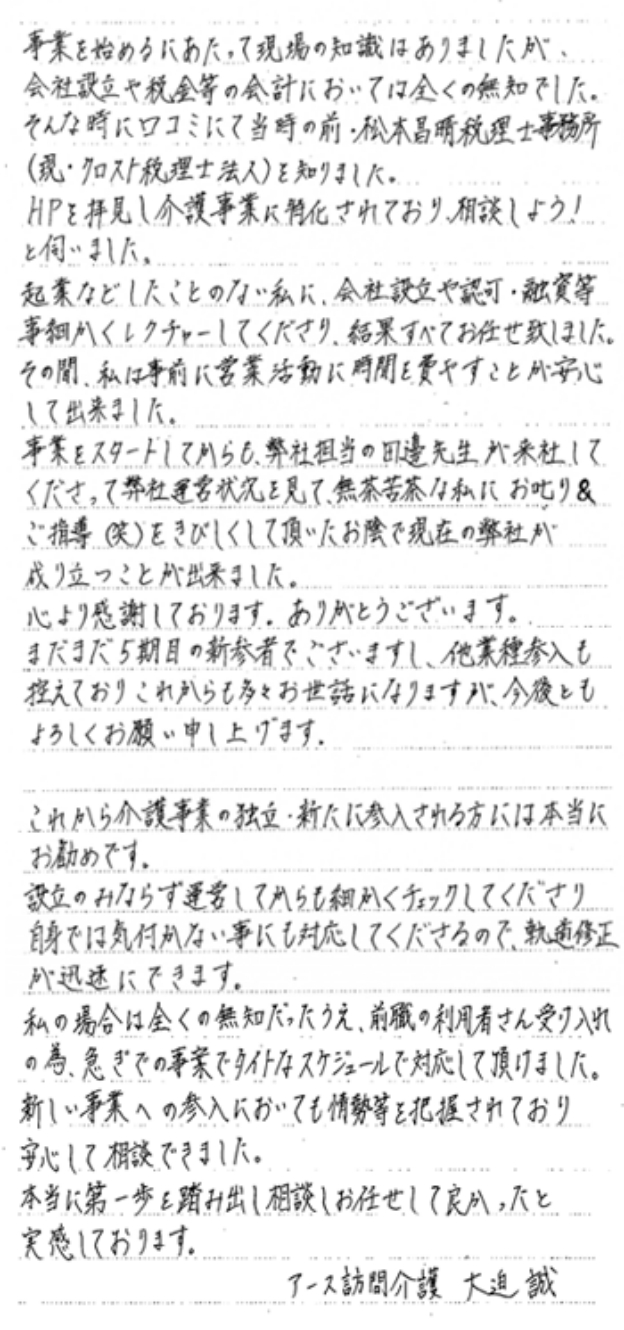 事業を始めるにあたって現場の知識はありましたが、
会社設立や税金等の会計においては全くの無知でした。
そんな時に口コミにて当時の前・松本昌晴税理士事務所
(現・クロスト税理士法人)を知りました。
HPを拝見し介護事業に特化されており、相談しよう!
と伺いました。
起業などしたことのない私に、会社設立や認可・融資等
事細かくレクチャーしてくださり、結果すべてお任せ致しました。
その間、私は事前に営業活動に時間を費やすことが安心
して出来ました。
事業をスタートしてからも、弊社担当の田邉先生が来社して
くださって弊社運営状況を見て、無茶苦茶な私にお叱り&
ご指導(笑)をきびしくして頂いたお陰で現在の弊社が
成り立つことが出来ました。
心より感謝しております。ありがとうございます。
まだまだ5期目の新参者でございますし、他業種参入も
控えておりこれからも多々お世話になりますが、今後とも
よろしくお願い申し上げます。
これから介護事業の独立・新たに参入される方には本当に
お勧めです。
設立のみならず運営してからも細かくチェックしてくださり
自身では気付かない事にも対応してくださるので、軌道修正
が迅速にできます。
私の場合は全くの無知だったうえ、前職の利用者さん受け入れ
の為、急ぎでの事業でタイトなスケジュールで対応して頂けました。
新しい事業への参入においても情勢等を把握されており
安心して相談できました。
本当に第一歩を踏み出し相談しお任せして良かったと
実感しております。
アース訪問介護 大迫 誠